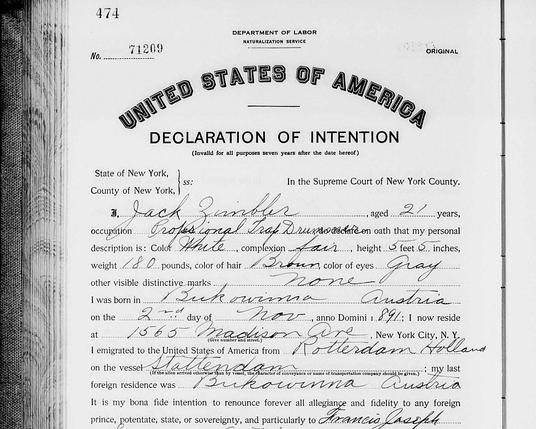 474
DEPARTMENT OF LABOR
NATURALIZATION SERVICE
No. 71209
ORIGINAL
UNITED STATES OF AMERICA
DECLARATION OF INTENTION
(Invalid for all purposes seven years after the date hereof)
State of New York,
County of New York, ss:
In the Supreme Court of New York County.
I, Jack Zumbler, aged 21 years,
occupation Professional Trap Drummer on oath that my personal
description is: Color White, complexion fair, height 5 feet 5 inches,
weight 180 pounds, color of hair Brown, color of eyes Gray
other visible distinctive marks None
I was born in Bukowinna Austria
on the 2nd day of Nov, anno Domini 1891; I now reside
at 1565 Madison Ave, New York City, N. Y.
(Give number and street.)
I emigrated to the United States of America from Rotterdam Holland
on the vessel Stattendam; my last
(If the alien arrived otherwise than by vessel, the character of conveyance or name of transportation company should be given.)
foreign residence was Bukowinna Austria
It is my bona fide intention to renounce forever all allegiance and fidelity to any foreign
prince, potentate, state, or sovereignty, and particularly to Francis Joseph